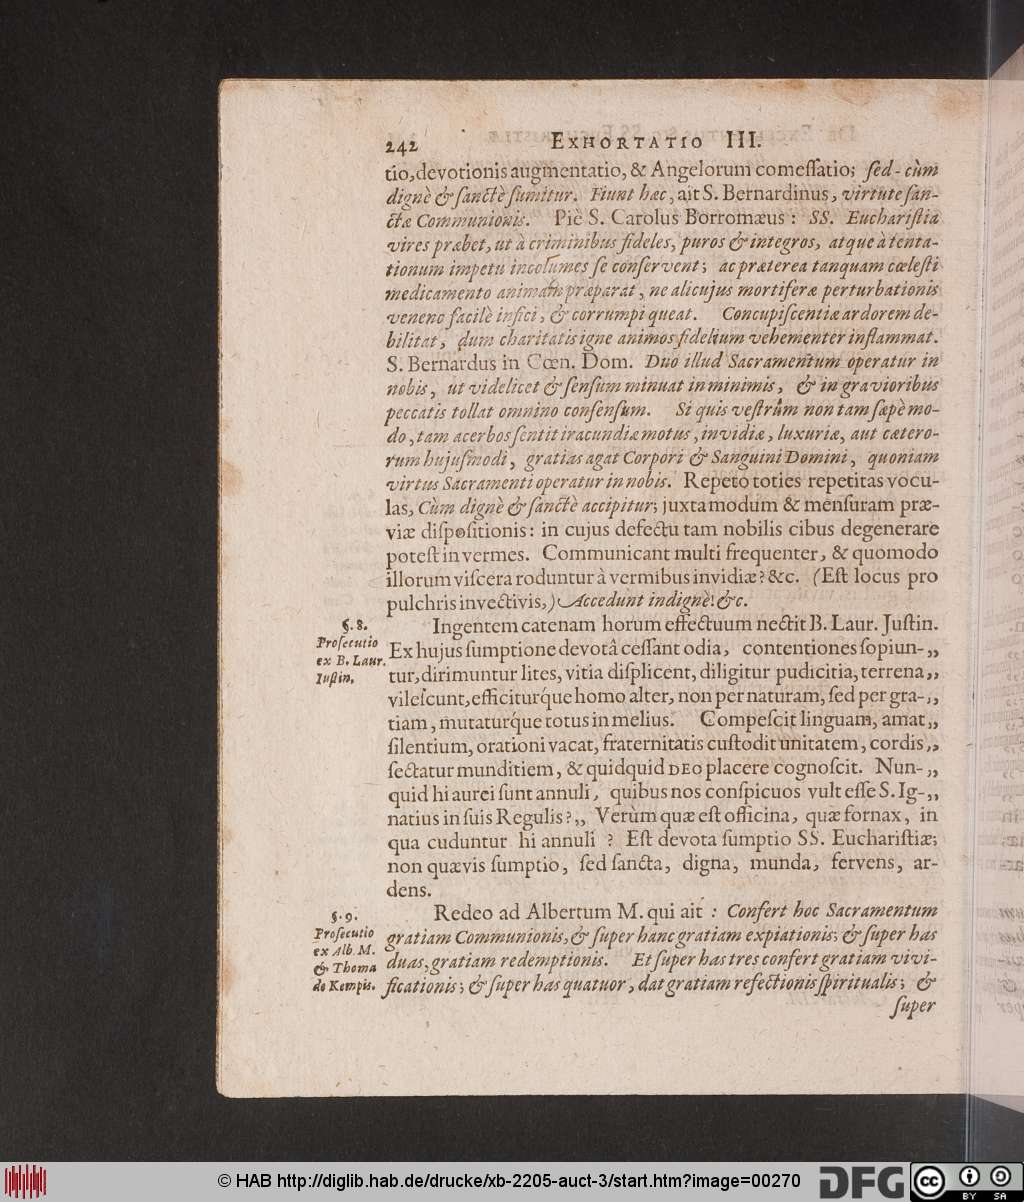 242 EXHORTATIO III.
tio, devotionis augmentatio, & Angelorum comeſſatio; ſed- cùm
dignè & ſanctè ſumitur. Fiunt hæc, ait S. Bernardinus, virtute ſan-
ctæ Communionis. Piè S. Carolus Borromæus: SS. Euchariſtia
vires præbet, ut à criminibus fideles, puros & integros, atque à tenta-
tionum impetu incolumes ſe conſervent; ac præterea tanquam cœleſti
medicamento animam præparat, ne alicujus mortiferæ perturbationis
veneno facilè infici, & corrumpi queat. Concupiſcentiæ ardorem de-
bilitat, dum charitatis igne animos fidelium vehementer inflammat.
S. Bernardus in Cœn. Dom. Duo illud Sacramentum operatur in
nobis, ut videlicet & ſenſum minuat in minimis, & in gravioribus
peccatis tollat omnino conſenſum. Si quis veſtrûm non tam ſæpè mo-
do, tam acerbos ſentit iracundiæ motus, invidiæ, luxuriæ, aut cætero-
rum hujuſmodi, gratias agat Corpori & Sanguini Domini, quoniam
virtus Sacramenti operatur in nobis. Repeto toties repetitas vocu-
las, Cùm dignè & ſanctè accipitur; juxta modum & menſuram præ-
viæ diſpoſitionis: in cujus defectu tam nobilis cibus degenerare
poteſt in vermes. Communicant multi frequenter, & quomodo
illorum viſcera roduntur à vermibus invidiæ? &c. (Eſt locus pro
pulchris invectivis,) Accedunt indignè! &c.
§. 8.
Proſecutio
ex B. Laur.
Iuſtin.
Ingentem catenam horum effectuum nectit B. Laur. Juſtin.
Ex hujus ſumptione devotâ ceſſant odia, contentiones ſopiun-„
tur, dirimuntur lites, vitia diſplicent, diligitur pudicitia, terrena„
vileſcunt, efficiturq́ue homo alter, non per naturam, ſed per gra-„
tiam, mutaturq́ue totus in melius. Compeſcit linguam, amat„
ſilentium, orationi vacat, fraternitatis cuſtodit unitatem, cordis„
ſectatur munditiem, & quidquid DEO placere cognoſcit. Nun-„
quid hi aurei ſunt annuli, quibus nos conſpicuos vult eſſe S. Ig-„
natius in ſuis Regulis?„ Verùm quæ eſt officina, quæ fornax, in
qua cuduntur hi annuli? Eſt devota ſumptio SS. Euchariſtiæ;
non quævis ſumptio, ſed ſancta, digna, munda, fervens, ar-
dens.
§. 9.
Proſecutio
ex Alb. M.
& Thoma
de Kempis.
Redeo ad Albertum M. qui ait: Confert hoc Sacramentum
gratiam Communionis, & ſuper hanc gratiam expiationis; & ſuper has
duas, gratiam redemptionis. Et ſuper has tres confert gratiam vivi-
ficationis; & ſuper has quatuor, dat gratiam refectionis ſpiritualis; &
ſuper
© HAB http://diglib.hab.de/drucke/xb-2205-auct-3/start.htm?image=00270
DFG
cc BY SA